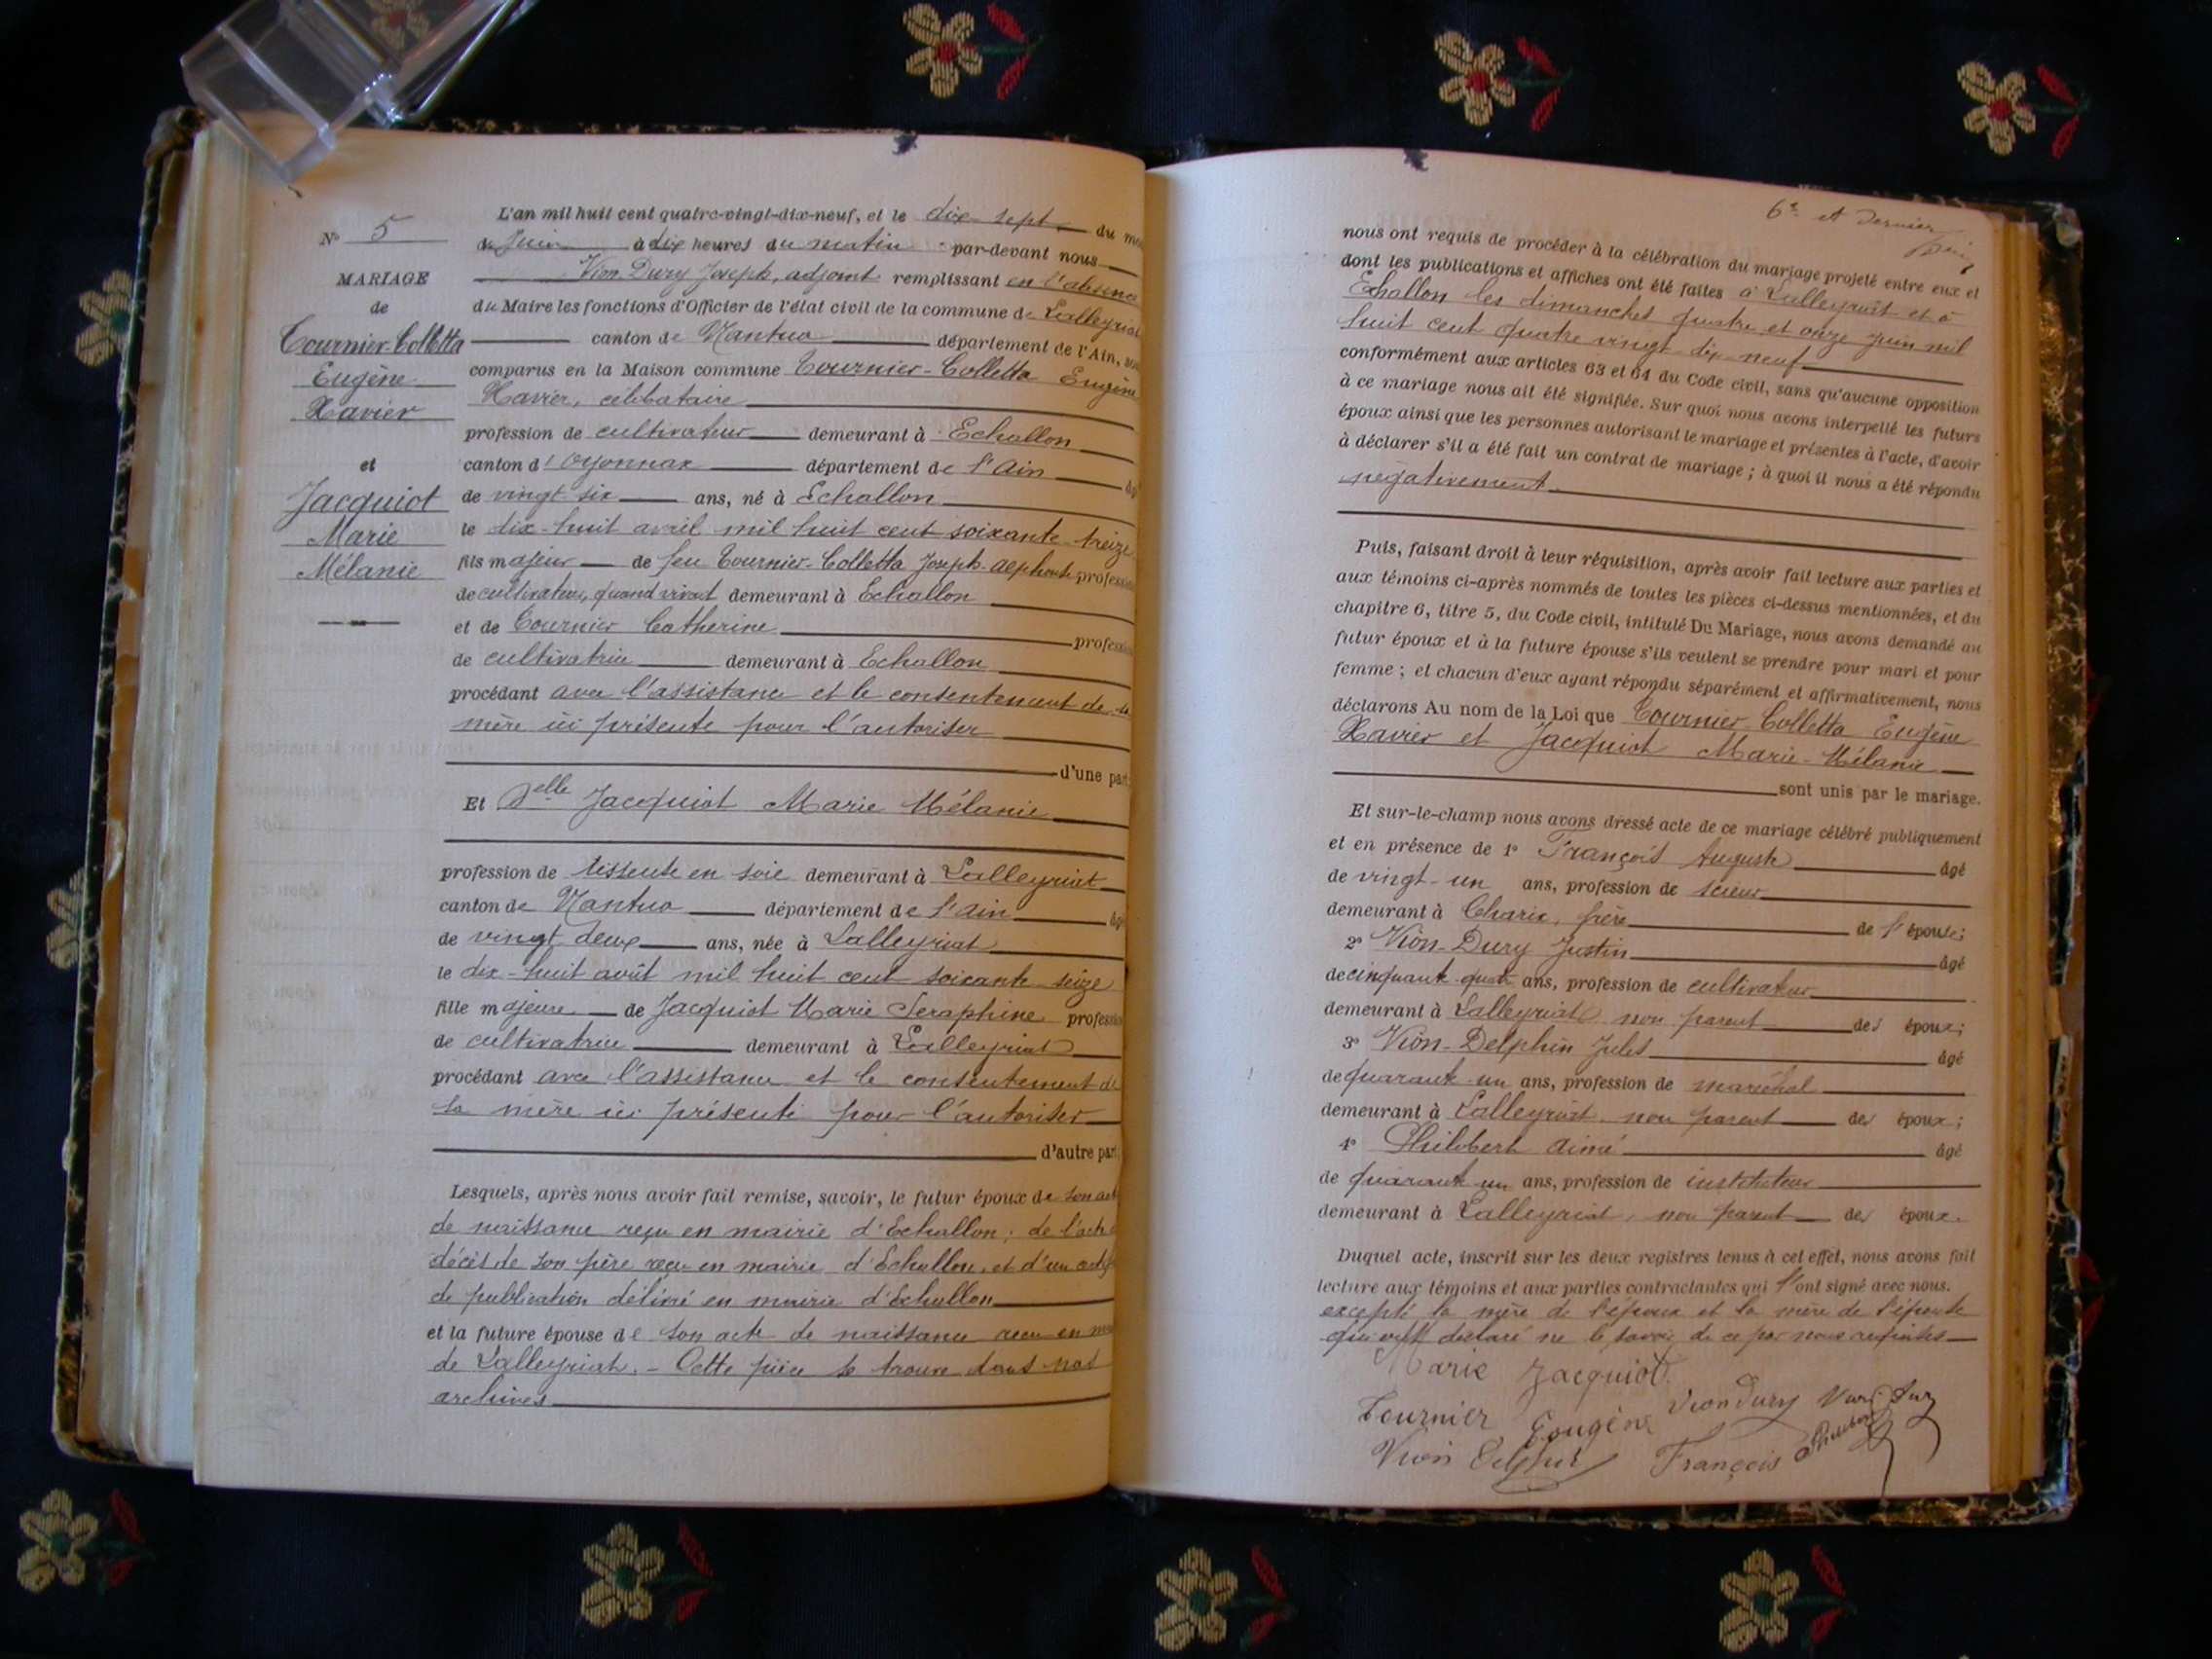 N° 5
MARIAGE
de
Tournier-Colletta
Eugène
Xavier
et
Jacquiot
Marie
Mélanie
L'an mil huit cent quatre-vingt-dix-neuf, et le dix-sept du
de Juin à dix heures du matin par-devant nous
Vion-Dury Joseph, adjoint remplissant en l'absence
du Maire les fonctions d'Officier de l'état civil de la commune de Lalleyriat
canton de Nantua département de l'Ain, sont
comparus en la Maison commune Tournier-Colletta Eugène
Xavier, célibataire
profession de cultivateur demeurant à Echallon
canton d'Oyonnax département de l'Ain
de vingt six ans, né à Echallon
le dix-huit avril mil huit cent soixante-treize
fils majeur de feu Tournier-Colletta Joseph-Alphonse profession
de cultivateur, quand vivait demeurant à Echallon
et de Tournier Catherine profession
de cultivatrice demeurant à Echallon
procédant avec l'assistance et le consentement de sa
mère ici présente pour l'autoriser
d'une part
Et Delle Jacquiot Marie Mélanie
profession de tisseuse en soie demeurant à Lalleyriat
canton de Nantua département de l'Ain âgée
de vingt deux ans, née à Lalleyriat
le dix-huit août mil huit cent soixante-seize
fille majeure de Jacquiot Marie Seraphine profession
de cultivatrice demeurant à Lalleyriat
procédant avec l'assistance et le consentement de
sa mère ici présente pour l'autoriser
d'autre part
Lesquels, après nous avoir fait remise, savoir, le futur époux de son acte
de naissance reçu en mairie d'Echallon; de l'acte
décès de son père reçu en mairie d'Echallon, et d'un
de publication délivré en mairie d'Echallon
et la future épouse de son acte de naissance reçu en
de Lalleyriat. - Cette pièce se trouve dans nos
archives
6e et dernier
nous ont requis de procéder à la célébration du mariage projeté entre eux et
dont les publications et affiches ont été faites à Lalleyriat et à
Echallon les dimanches quatre et onze juin mil
huit cent quatre vingt-dix-neuf
conformément aux articles 63 et 64 du Code civil, sans qu'aucune opposition
à ce mariage nous ait été signifiée. Sur quoi nous avons interpellé les futurs
époux ainsi que les personnes autorisant le mariage et présentes à l'acte, d'avoir
à déclarer s'il a été fait un contrat de mariage ; à quoi il nous a été répondu
négativement
Puis, faisant droit à leur réquisition, après avoir fait lecture aux parties et
aux témoins ci-après nommés de toutes les pièces ci-dessus mentionnées, et du
chapitre 6, titre 5, du Code civil, intitulé Du Mariage, nous avons demandé au
futur époux et à la future épouse s'ils veulent se prendre pour mari et pour
femme ; et chacun d'eux ayant répondu séparément et affirmativement, nous
déclarons Au nom de la Loi que Tournier-Colletta Eugène
Xavier et Jacquiot Marie-Mélanie
sont unis par le mariage.
Et sur-le-champ nous avons dressé acte de ce mariage célébré publiquement
et en présence de 1° François Auguste âgé
de vingt-un ans, profession de scieur
demeurant à Charix, frère de l'épouse;
2° Vion-Dury Justin âgé
de cinquante-quatre ans, profession de cultivateur
demeurant à Lalleyriat non parent des époux;
3° Vion-Delphin Jules âgé
de quarante-un ans, profession de maréchal
demeurant à Lalleyriat, non parent des époux;
4° Philibert Aimé âgé
de quarante-un ans, profession de instituteur
demeurant à Lalleyriat, non parent des époux.
Duquel acte, inscrit sur les deux registres tenus à cet effet, nous avons fait
lecture aux témoins et aux parties contractantes qui l'ont signé avec nous.
excepté la mère de l'époux et la mère de l'épouse
qui ont déclaré ne le savoir de ce par nous requises
Marie Jacquiot
Tournier Eougène Vion Dury
Vion Delphin François Philibert